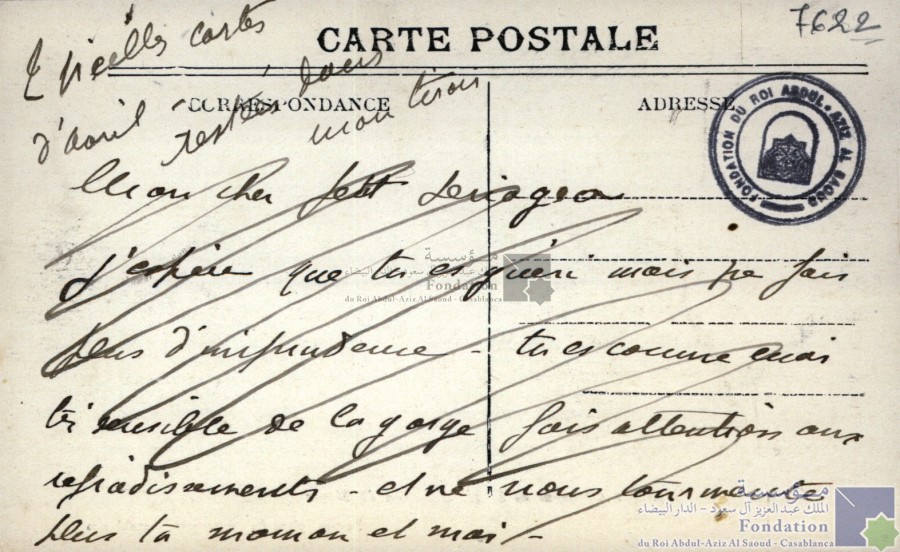 7622
2 vieilles cartes
d'avril restées dans
mon tiroir
CARTE POSTALE
CORRESPONDANCE
ADRESSE
FONDATION DU ROI ABDUL-AZIZ AL SAOUD
Mon cher petit
J'espère que tu es guéri mais ne fais
plus d'imprudence - tu es comme moi
très sensible de la gorge fais attention aux
refroidissements - et ne nous tourmente
plus ta maman et moi -
مؤسسة
الملك عبد العزيز آل سعود - الدار البيضاء
Fondation
du Roi Abdul-Aziz Al Saoud - Casablanca
مؤسسة
الملك عبد العزيز آل سعود - الدار البيضاء
Fondation
du Roi Abdul-Aziz Al Saoud - Casablanca